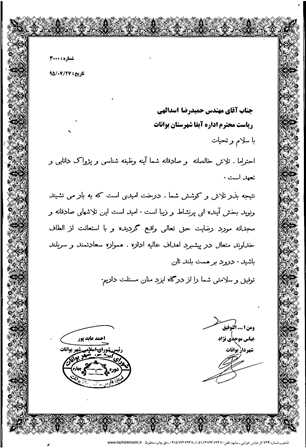 شماره: ۳۰۰۰
تاریخ: ۹۵/۰۷/۲۷
جناب آقای مهندس حمیدرضا اسدالهی
ریاست محترم اداره آبفا شهرستان بوانات
با سلام و تحیات
احتراما . تلاش خالصانه و صادقانه شما آینه وظیفه شناسی و پژواک دانایی و
تعهد است .
نتیجه بذر تلاش و کوشش شما . درخت امیدی است که به بار می نشیند
ونوید بخش آینده ای پرنشاط و زیبا است . امید است این تلاشهای صادقانه و
مجدانه مورد رضایت حق تعالی واقع گردیده و با استعانت از الطاف
خداوند متعال در پیشبرد اهداف عالیه اداره . همواره سعادتمند و سربلند
باشید . درود بر همت بلند تان
توفیق و سلامتی شما را از درگاه ایزد منان مسئلت داریم.
ومن ا... التوفیق
عباس موحدی نژاد
شهردار بوانات
احمد عابد پور
رئیس شورای اسلامی شهر بوانات